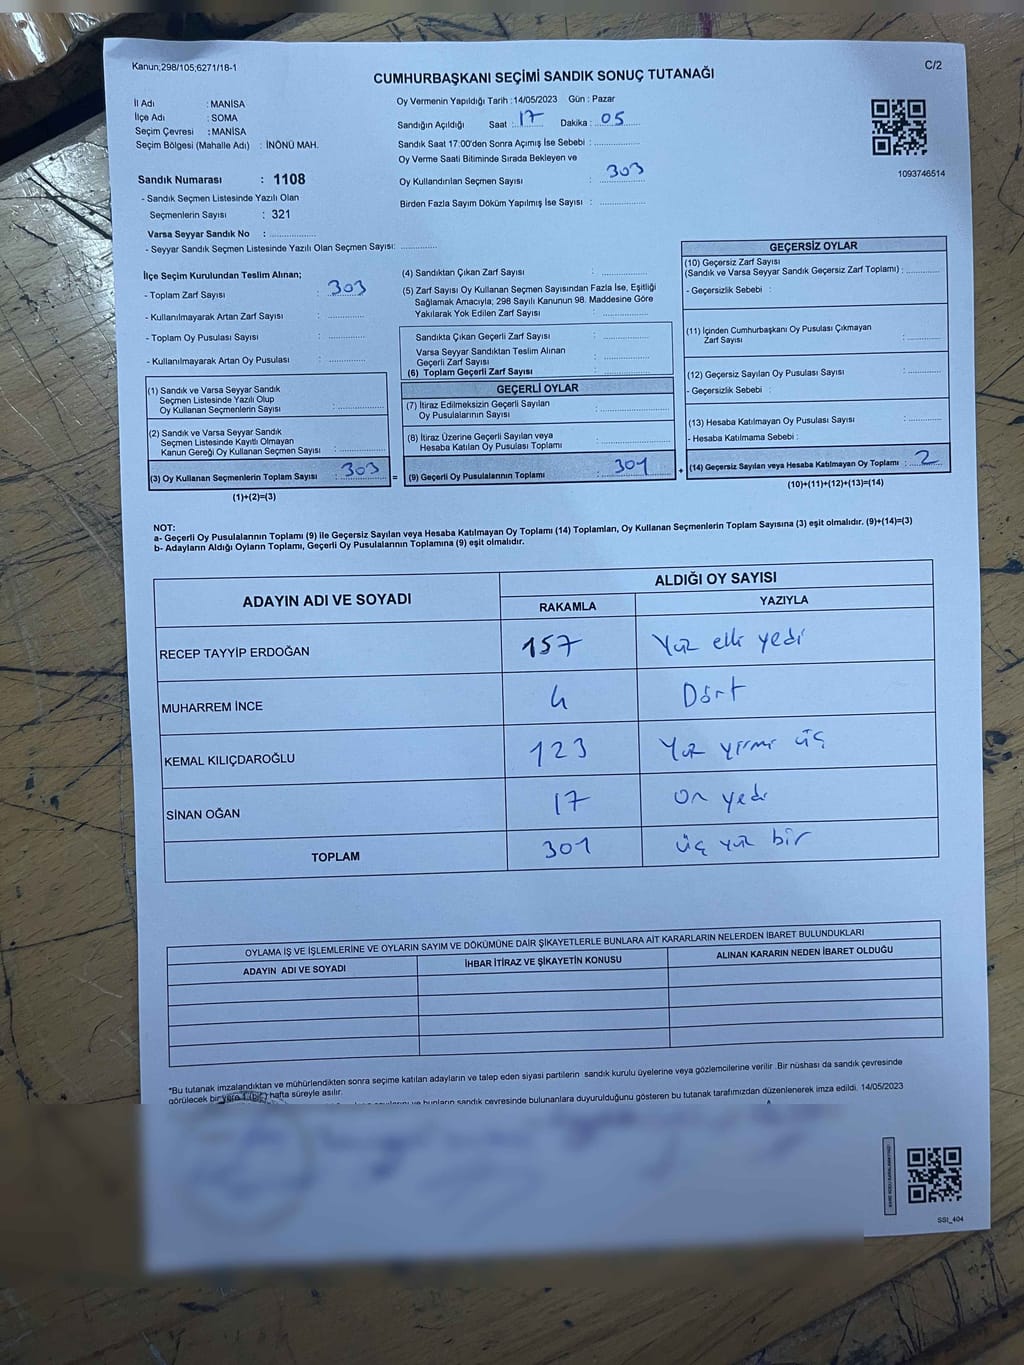 Kanun;298/105;6271/18-1
C/2
CUMHURBAŞKANI SEÇİMİ SANDIK SONUÇ TUTANAĞI
İl Adı : MANİSA
İlçe Adı : SOMA
Seçim Çevresi : MANİSA
Seçim Bölgesi (Mahalle Adı) : İNÖNÜ MAH.
Oy Vermenin Yapıldığı Tarih : 14/05/2023 Gün : Pazar
Sandığın Açıldığı Saat : 17 Dakika : 05
Sandık Saat 17:00'den Sonra Açımış İse Sebebi :
Oy Verme Saati Bitiminde Sırada Bekleyen ve
Oy Kullandırılan Seçmen Sayısı : 303
Birden Fazla Sayım Döküm Yapılmış İse Sayısı :
1093746514
Sandık Numarası : 1108
- Sandık Seçmen Listesinde Yazılı Olan
Seçmenlerin Sayısı : 321
Varsa Seyyar Sandık No :
- Seyyar Sandık Seçmen Listesinde Yazılı Olan Seçmen Sayısı:
İlçe Seçim Kurulundan Teslim Alınan;
- Toplam Zarf Sayısı : 303
- Kullanılmayarak Artan Zarf Sayısı :
- Toplam Oy Pusulası Sayısı :
- Kullanılmayarak Artan Oy Pusulası :
(1) Sandık ve Varsa Seyyar Sandık
Seçmen Listesinde Yazılı Olup
Oy Kullanan Seçmenlerin Sayısı :
(2) Sandık ve Varsa Seyyar Sandık
Seçmen Listesinde Kayıtlı Olmayan
Kanun Gereği Oy Kullanan Seçmen Sayısı :
(3) Oy Kullanan Seçmenlerin Toplam Sayısı : 303
(1)+(2)=(3)
(4) Sandıktan Çıkan Zarf Sayısı :
(5) Zarf Sayısı Oy Kullanan Seçmen Sayısından Fazla İse, Eşitliği
Sağlamak Amacıyla; 298 Sayılı Kanunun 98. Maddesine Göre
Yakılarak Yok Edilen Zarf Sayısı :
Sandıkta Çıkan Geçerli Zarf Sayısı :
Varsa Seyyar Sandıktan Teslim Alınan
Geçerli Zarf Sayısı :
(6) Toplam Geçerli Zarf Sayısı :
GEÇERLİ OYLAR
(7) İtiraz Edilmeksizin Geçerli Sayılan
Oy Pusulalarının Sayısı :
(8) İtiraz Üzerine Geçerli Sayılan veya
Hesaba Katılan Oy Pusulası Toplamı :
= (9) Geçerli Oy Pusulalarının Toplamı : 301
GEÇERSİZ OYLAR
(10) Geçersiz Zarf Sayısı
(Sandık ve Varsa Seyyar Sandık Geçersiz Zarf Toplamı) :
- Geçersizlik Sebebi :
(11) İçinden Cumhurbaşkanı Oy Pusulası Çıkmayan
Zarf Sayısı :
(12) Geçersiz Sayılan Oy Pusulası Sayısı :
- Geçersizlik Sebebi :
(13) Hesaba Katılmayan Oy Pusulası Sayısı :
- Hesaba Katılmama Sebebi :
+ (14) Geçersiz Sayılan veya Hesaba Katılmayan Oy Toplamı : 2
(10)+(11)+(12)+(13)=(14)
NOT:
a- Geçerli Oy Pusulalarının Toplamı (9) ile Geçersiz Sayılan veya Hesaba Katılmayan Oy Toplamı (14) Toplamları, Oy Kullanan Seçmenlerin Toplam Sayısına (3) eşit olmalıdır. (9)+(14)=(3)
b- Adayların Aldığı Oyların Toplamı, Geçerli Oy Pusulalarının Toplamına (9) eşit olmalıdır.
ADAYIN ADI VE SOYADI
ALDIĞI OY SAYISI
RAKAMLA YAZIYLA
RECEP TAYYİP ERDOĞAN 157 Yüz elli yedi
MUHARREM İNCE 4 Dört
KEMAL KILIÇDAROĞLU 123 Yüz yirmi üç
SİNAN OĞAN 17 On yedi
TOPLAM 301 üç yüz bir
OYLAMA İŞ VE İŞLEMLERİNE VE OYLARIN SAYIM VE DÖKÜMÜNE DAİR ŞİKAYETLERLE BUNLARA AİT KARARLARIN NELERDEN İBARET BULUNDUKLARI
ADAYIN ADI VE SOYADI İHBAR İTİRAZ VE ŞİKAYETİN KONUSU ALINAN KARARIN NEDEN İBARET OLDUĞU
*Bu tutanak imzalandıktan ve mühürlendikten sonra seçime katılan adayların ve talep eden siyasi partilerin sandık kurulu üyelerine veya gözlemcilerine verilir .Bir nüshası da sandık çevresinde
görülecek bir yere 1 (bir) hafta süreyle asılır.
bunların sandık çevresinde bulunanlara duyurulduğunu gösteren bu tutanak tarafımızdan düzenlenerek imza edildi. 14/05/2023
SSI_404